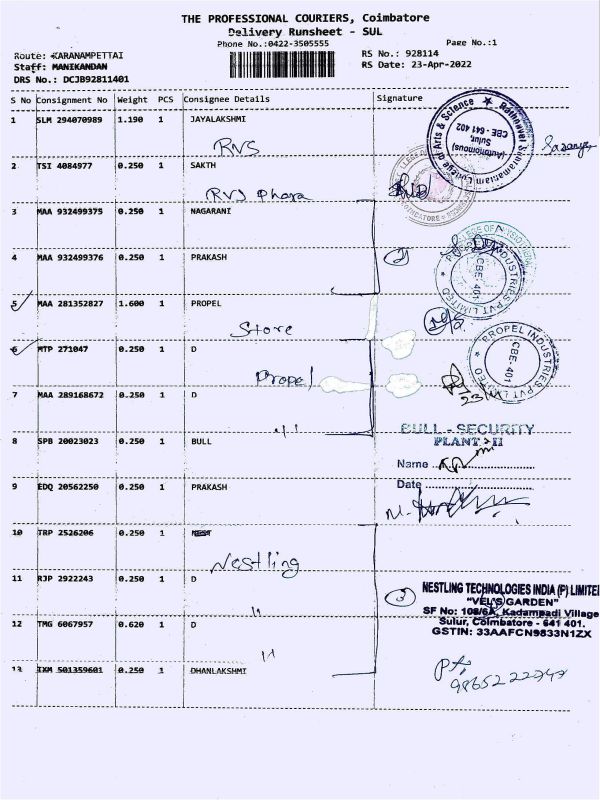 THE PROFESSIONAL COURIERS, Coimbatore
Delivery Runsheet - SUL
Phone No.:0422-3505555
Page No.:1
Route: KARANAMPETTAI
Staff: MANIKANDAN
DRS No.: DCJB92811401
RS No.: 928114
RS Date: 23-Apr-2022
S No Consignment No Weight PCS Consignee Details Signature
1 SLM 294070989 1.190 1 JAYALAKSHMI
RVS
Rathnavel Subramaniam College of Arts & Science
(Autonomous)
Sulur,
CBE - 641 402
2 TSI 4084977 0.250 1 SAKTH
RVS Phara
3 MAA 932499375 0.250 1 NAGARANI
4 MAA 932499376 0.250 1 PRAKASH
2
5 MAA 281352827 1.600 1 PROPEL
Store
INDUSTRIES PVT LIMITED
CBE- 401
6 MTP 271047 0.250 1 D
Propel
PROPEL INDUSTRIES PVT LIMITED
CBE- 401
7 MAA 289168672 0.250 1 D
"
8 SPB 20023023 0.250 1 BULL
BULL - SECURITY
PLANT - II
Name
Date
9 EDQ 20562250 0.250 1 PRAKASH
10 TRP 2526206 0.250 1 NEST
Nestling
11 RJP 2922243 0.250 1 D
"
3
NESTLING TECHNOLOGIES INDIA (P) LIMITE
"VEL'S GARDEN"
SF No: 108/6A, Kadampadi Village
Sulur, Coimbatore - 641 401.
GSTIN: 33AAFCN9833N1ZX
12 TMG 6067957 0.620 1 D
"
13 IXM 501359601 0.250 1 DHANLAKSHMI